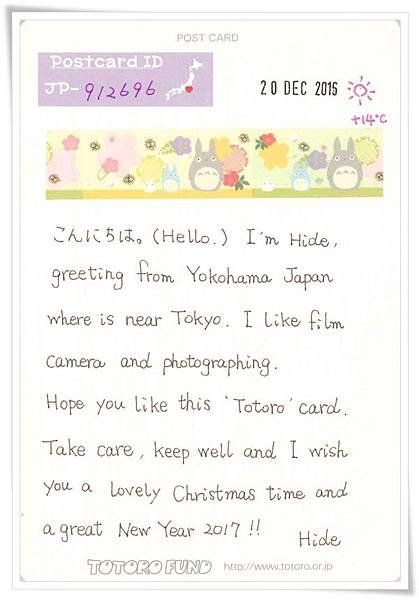 POST CARD
Postcard ID
JP-912696
20 DEC 2015
+14°C
こんにちは。(Hello.) I'm Hide,
greeting from Yokohama Japan
where is near Tokyo. I like film
camera and photographing.
Hope you like this 'Totoro' card.
Take care, keep well and I wish
you a lovely Christmas time and
a great New Year 2017!!
Hide
TOTORO FUND http://www.totoro.or.jp